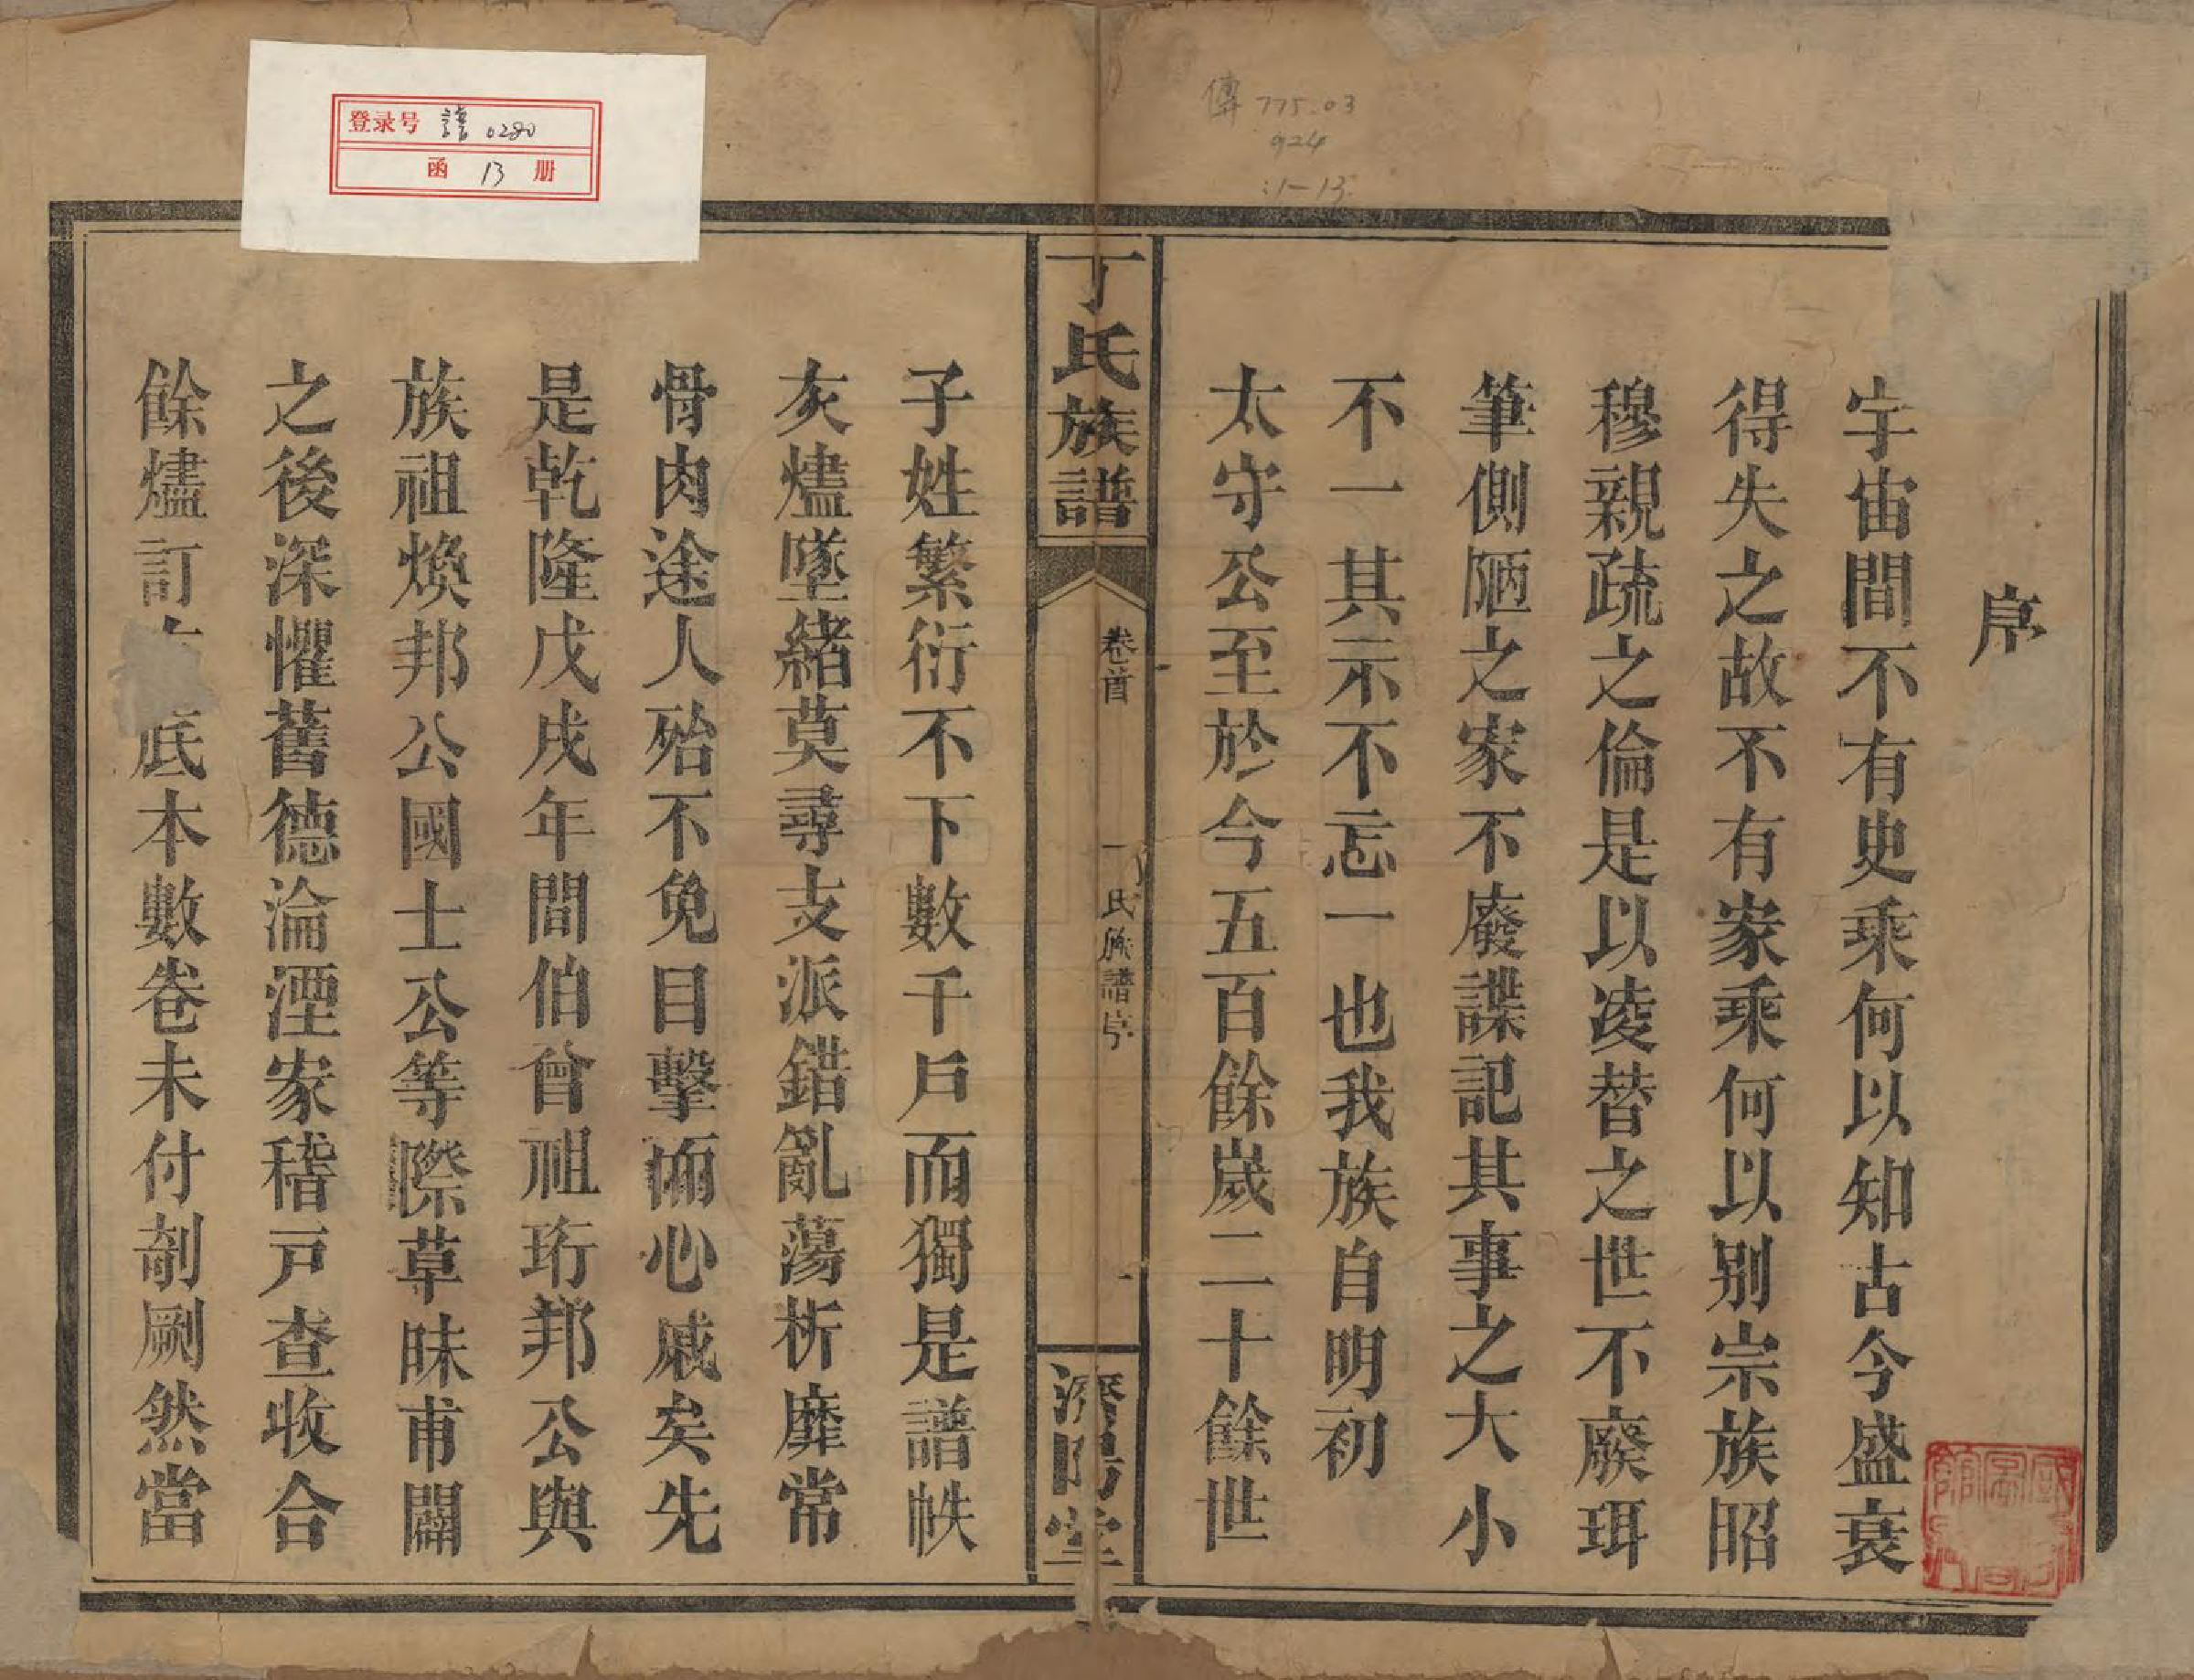 序
宇宙間不有史乘何以知古今盛衰
得失之故不有家乘何以别宗族昭
穆親疏之倫是以凌替之世不廢珥
筆側陋之家不廢諜記其事之大小
不一其示不忘一也我族自明初
太守公至於今五百餘歲二十餘世
丁氏族譜
卷首
氏族譜序
一
濟陽堂
子姓繁衍不下數千戶而獨是譜帙
灰燼墜緒莫尋支派錯亂蕩析靡常
骨肉途人殆不免目擊而心戚矣先
是乾隆戊戌年間伯曾祖珩邦公與
族祖煥邦公國士公等際草昧甫闢
之後深懼舊德淪湮家稽戸查收合
餘燼訂 底本數卷未付剞劂然當
登录号 譜 0280
函 13 册
傳 775.03
924
:1-13